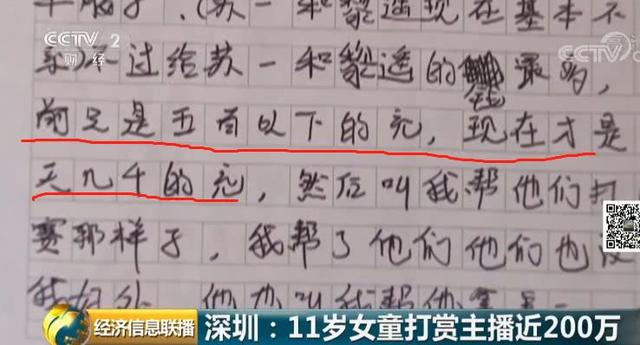 CCTV 2
财经
CCTV
(苏一和黎遥现在基本不
不过给苏一和黎遥的钱最多，
前只是五百以下的充，现在才是
天几千的充，然后叫我帮他们打
赛那样子，我帮了他们他们也没
我好处，他也叫我帮他
经济信息联播
深圳：11岁女童打赏主播近200万